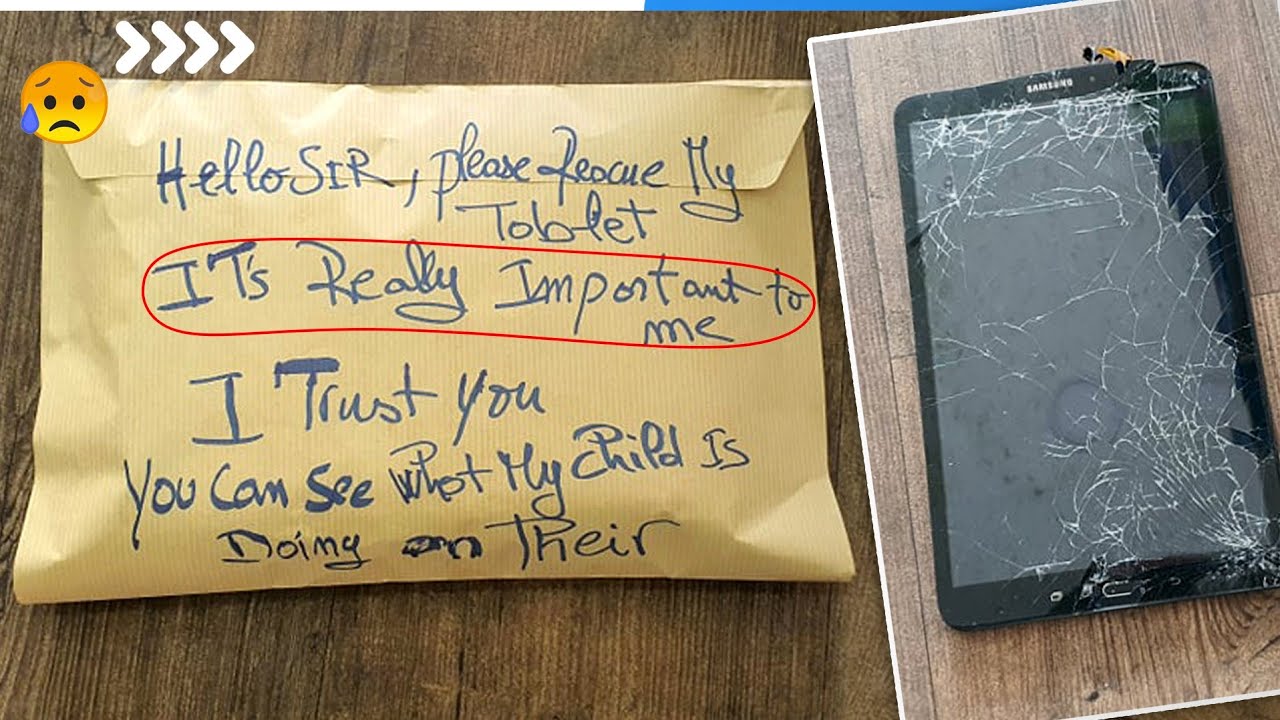 Hello SIR, please Rescue My
Tablet
IT's Really Important to
me
I Trust you
You Can See What My Child Is
Doing on Their
SAMSUNG